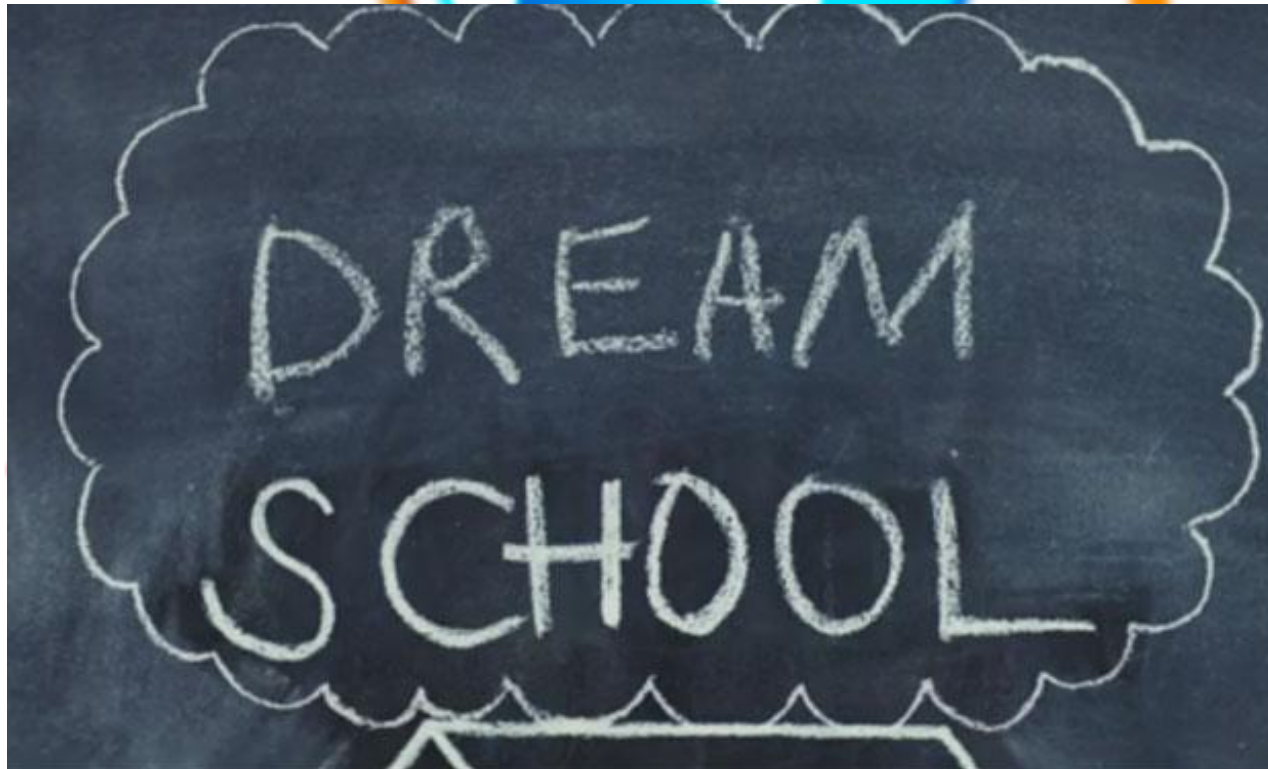 DREAM
SCHOOL